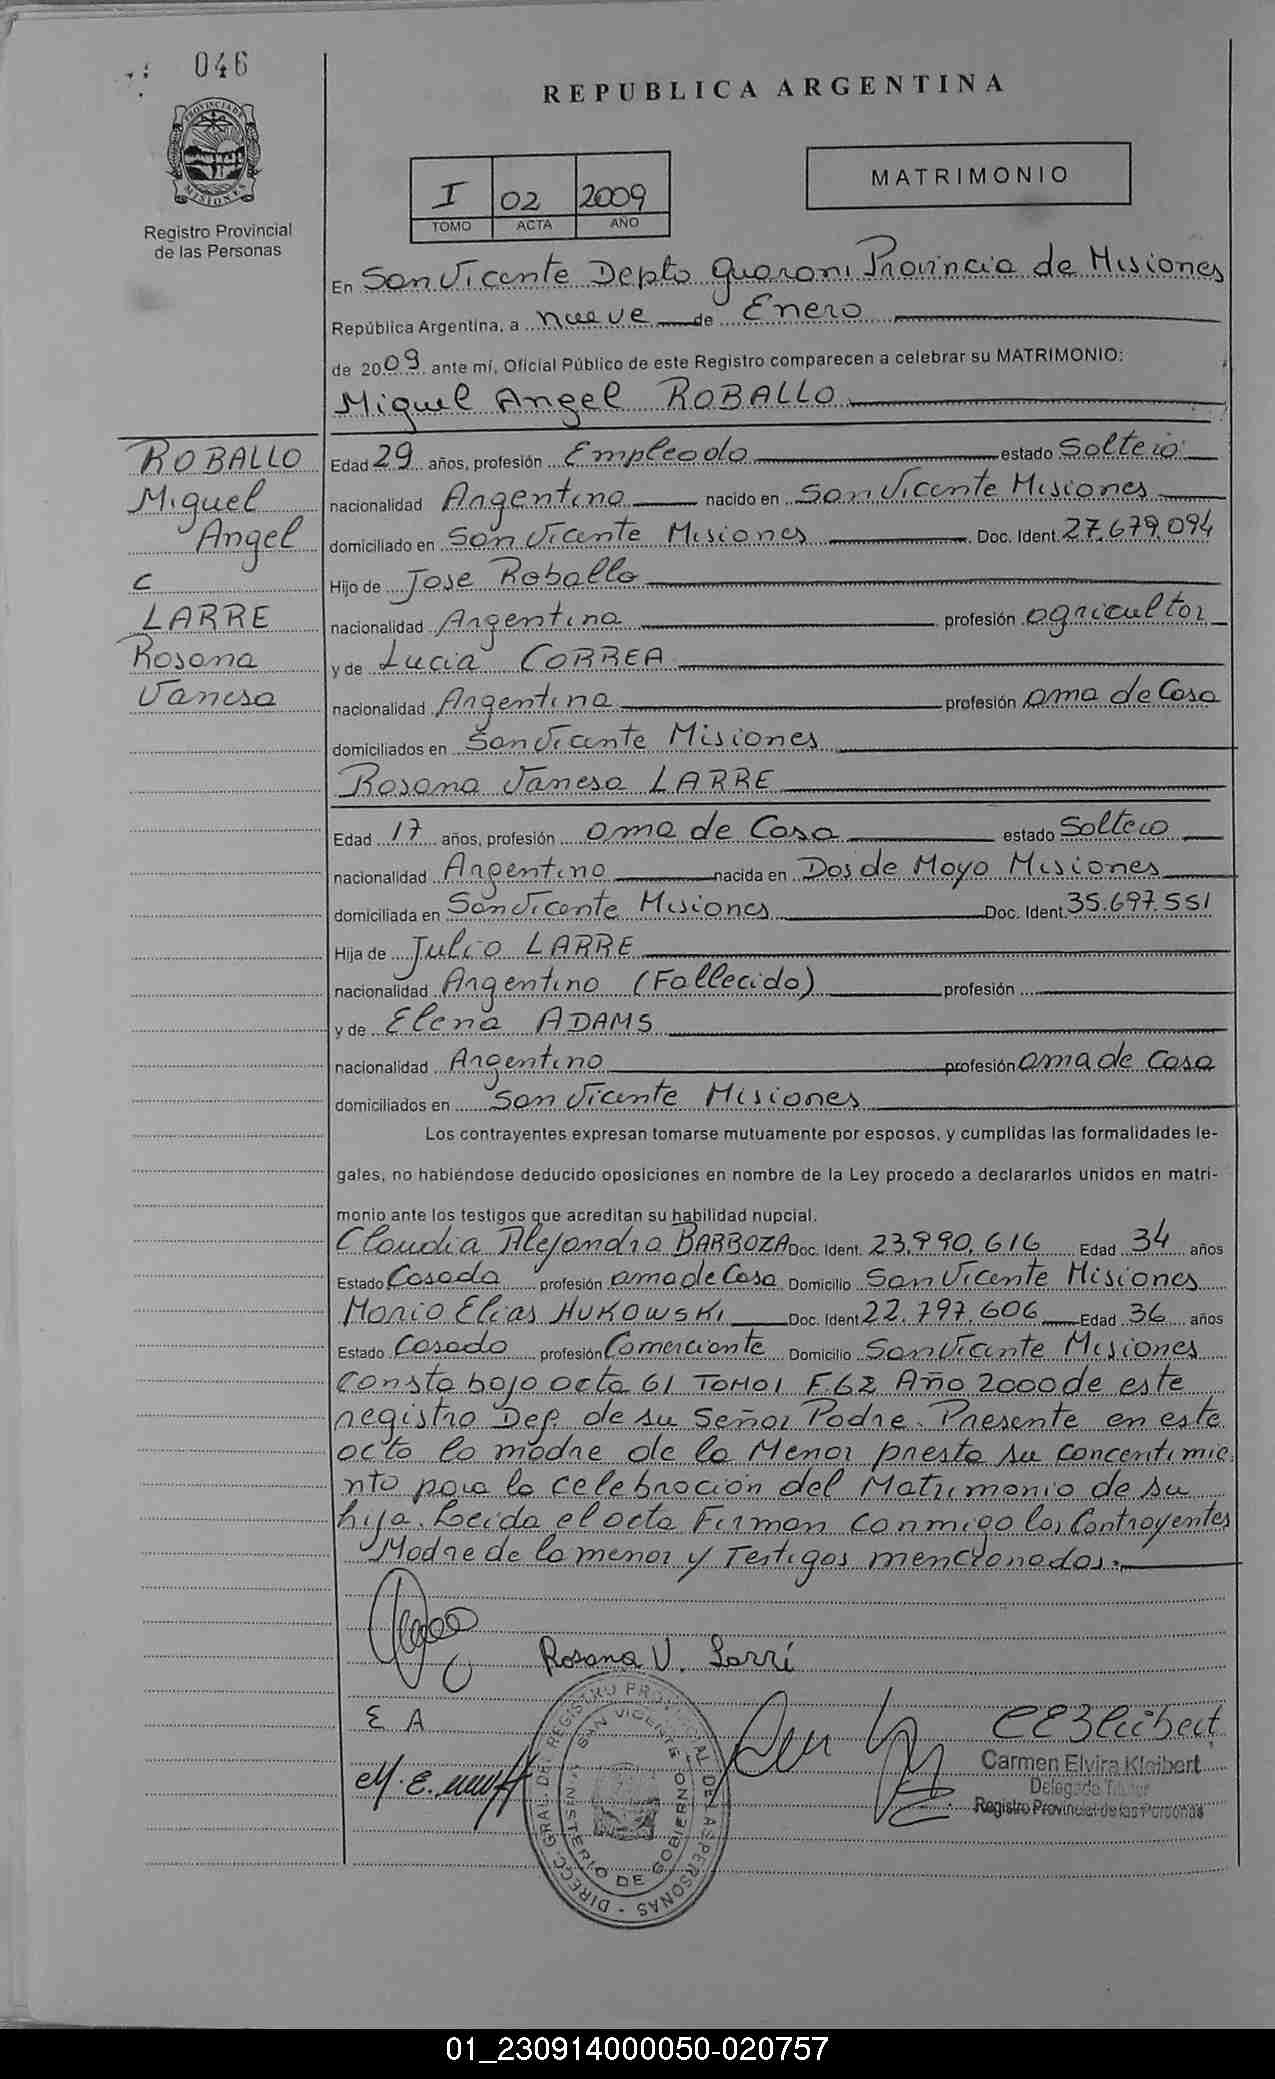 046
REPUBLICA ARGENTINA
PROVINCIA DE MISIONES
Registro Provincial
de las Personas
I 02 2009
TOMO ACTA AÑO
MATRIMONIO
En San Vicente Depto Guarani Provincia de Misiones
República Argentina, a nueve de Enero
de 2009 ante mí, Oficial Público de este Registro comparecen a celebrar su MATRIMONIO:
Miguel Angel ROBALLO
ROBALLO
Miguel
Angel
c
LARRE
Rosana
Vanesa
Edad 29 años, profesión Empleado estado Soltero
nacionalidad Argentina nacido en San Vicente Misiones
domiciliado en San Vicente Misiones Doc. Ident. 27.679.094
Hijo de Jose Roballo
nacionalidad Argentina profesión agricultor
y de Lucia CORREA
nacionalidad Argentina profesión ama de Casa
domiciliados en San Vicente Misiones
Rosana Vanesa LARRE
Edad 17 años, profesión ama de Casa estado Soltera
nacionalidad Argentina nacida en Dos de Mayo Misiones
domiciliada en San Vicente Misiones Doc. Ident. 35.697.551
Hija de Julio LARRE
nacionalidad Argentino (Fallecido) profesión
y de Elena ADAMS
nacionalidad Argentina profesión ama de Casa
domiciliados en San Vicente Misiones
Los contrayentes expresan tomarse mutuamente por esposos, y cumplidas las formalidades le-
gales, no habiéndose deducido oposiciones en nombre de la Ley procedo a declararlos unidos en matri-
monio ante los testigos que acreditan su habilidad nupcial.
Claudia Alejandra BARBOZA Doc. Ident. 23.990.616 Edad 34 años
Estado Casada profesión ama de Casa Domicilio San Vicente Misiones
Mario Elias HUKOWSKI Doc. Ident. 22.797.606 Edad 36 años
Estado Casado profesión Comerciante Domicilio San Vicente Misiones
Consta bajo acta 61 Tomo I F.62 Año 2000 de este
registro Dep. de su Señor Padre. Presente en este
acto la madre de la Menor presta su concentimie
nto para la celebración del Matrimonio de su
hija. Leida el acta Firman conmigo los Contrayentes
Madre de la menor y Testigos mencionados.
Rosana V. Larré
E A
DIRECC. GRAL. DEL REGISTRO PROVINCIAL DE LAS PERSONAS
SAN VICENTE
MINISTERIO DE GOBIERNO
Carmen Elvira Kleibert
Delegada Titular
Registro Provincial de las Personas
01_230914000050-020757